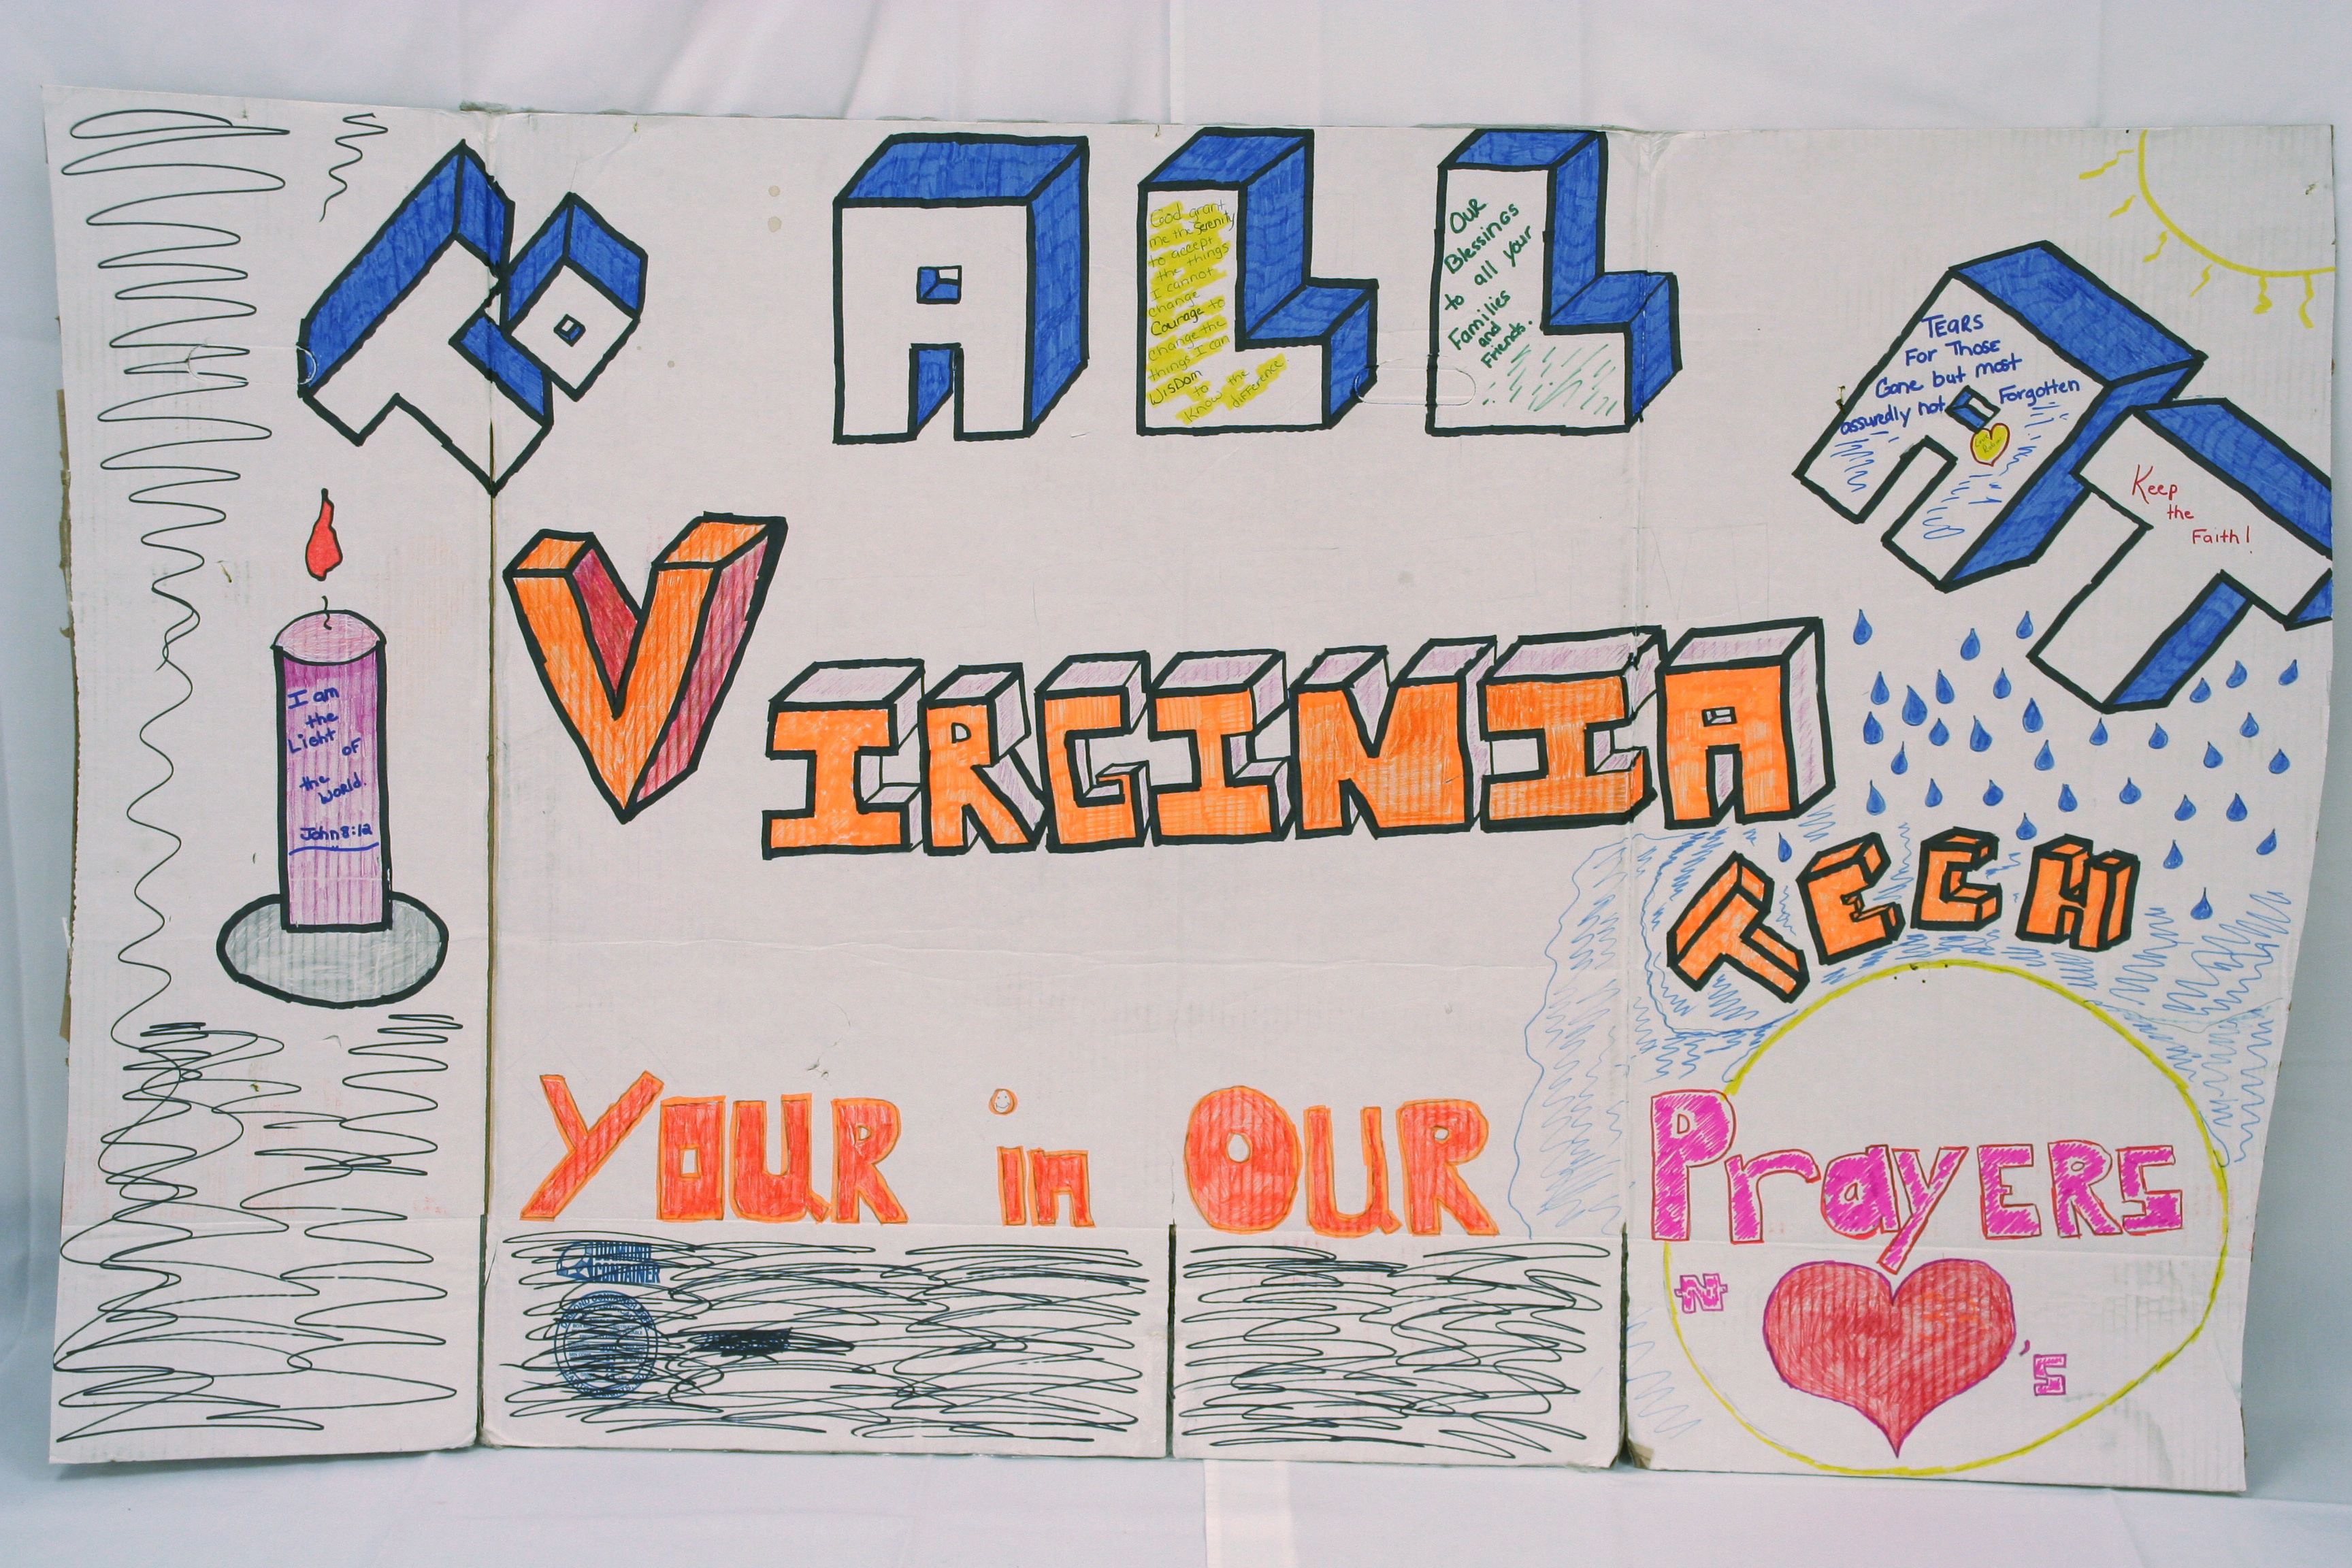 To ALL AT
God grant
me the Serenity
to accept
the things
I cannot
change
Courage to
change the
things I can
Wisdom
to
Know the
difference
OUR
Blessings
to all your
Families
and
Friends.
TEARS
For Those
Gone but most
assuredly not Forgotten
Keep
the
Faith!
VIRGINIA
TECH
I am
the
Light of
the
World.
John 8:12
YOUR in OUR PrayERS
N 's
CONTAINER